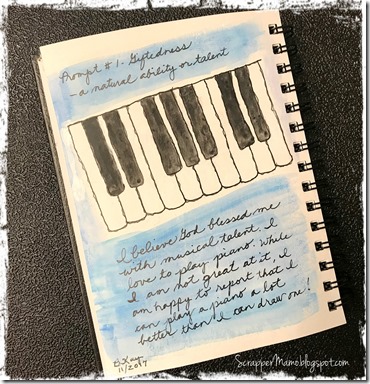 Prompt #1 - Giftedness
- a natural ability or talent
I believe God blessed me
with musical talent. I
love to play piano. While
I am not great at it, I
am happy to report that I
can play a piano a lot
better then I can draw one!
11/2017
ScrapperMamo.blogspot.com